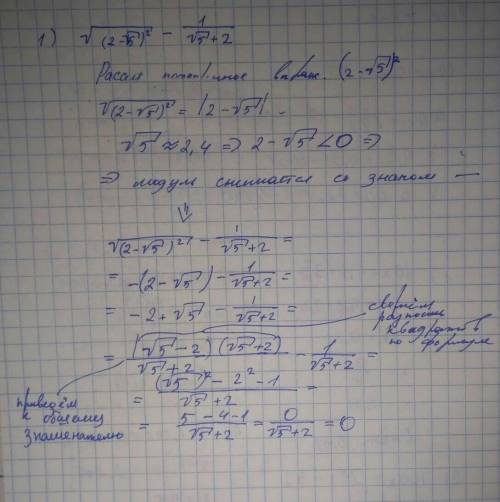 1) √(2-√5)² - 1/(√5+2)
Рассм выраж. (2-√5)²
√(2-√5)² = |2-√5|.
√5 ≈ 2,4 ⇒ 2-√5 < 0 ⇒
⇒ модуль снимается со знаком —
⇓
√(2-√5)² - 1/(√5+2) =
= -(2-√5) - 1/(√5+2) =
= -2+√5 - 1/(√5+2) =
свернём разность квадратов по формуле
= (√5-2)(√5+2)/(√5+2) - 1/(√5+2) =
приведём к общему знаменателю
= ((√5)²-2²-1)/(√5+2) =
= (5-4-1)/(√5+2) = 0/(√5+2) = 0